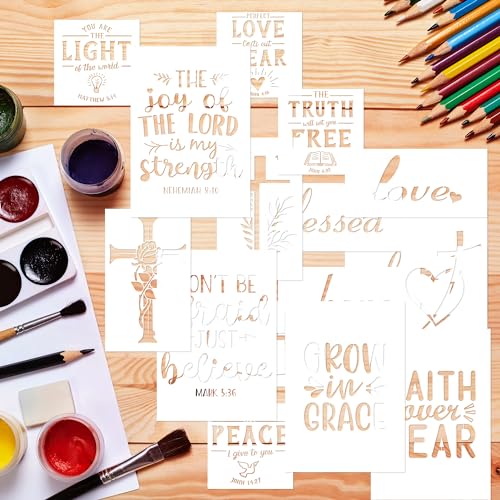 YOU ARE
THE
LIGHT
of the world
MATTHEW 5:14
PERFECT
LOVE
Casts out
EAR
THE
joy of
THE LORD
is my
strength
NEHEMIAH 8:10
THE
TRUTH
will set you
FREE
love
lessed
ON'T BE
fraid
JUST
believe
MARK 5:36
GROW
in
GRACE
AITH
over
EAR
PEACE
I give to you
JOHN 14:27